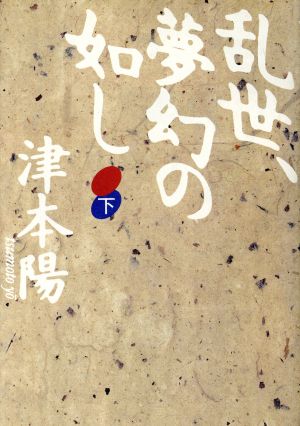 乱世、
夢幻の
如し
下
津本陽
tsumoto yo